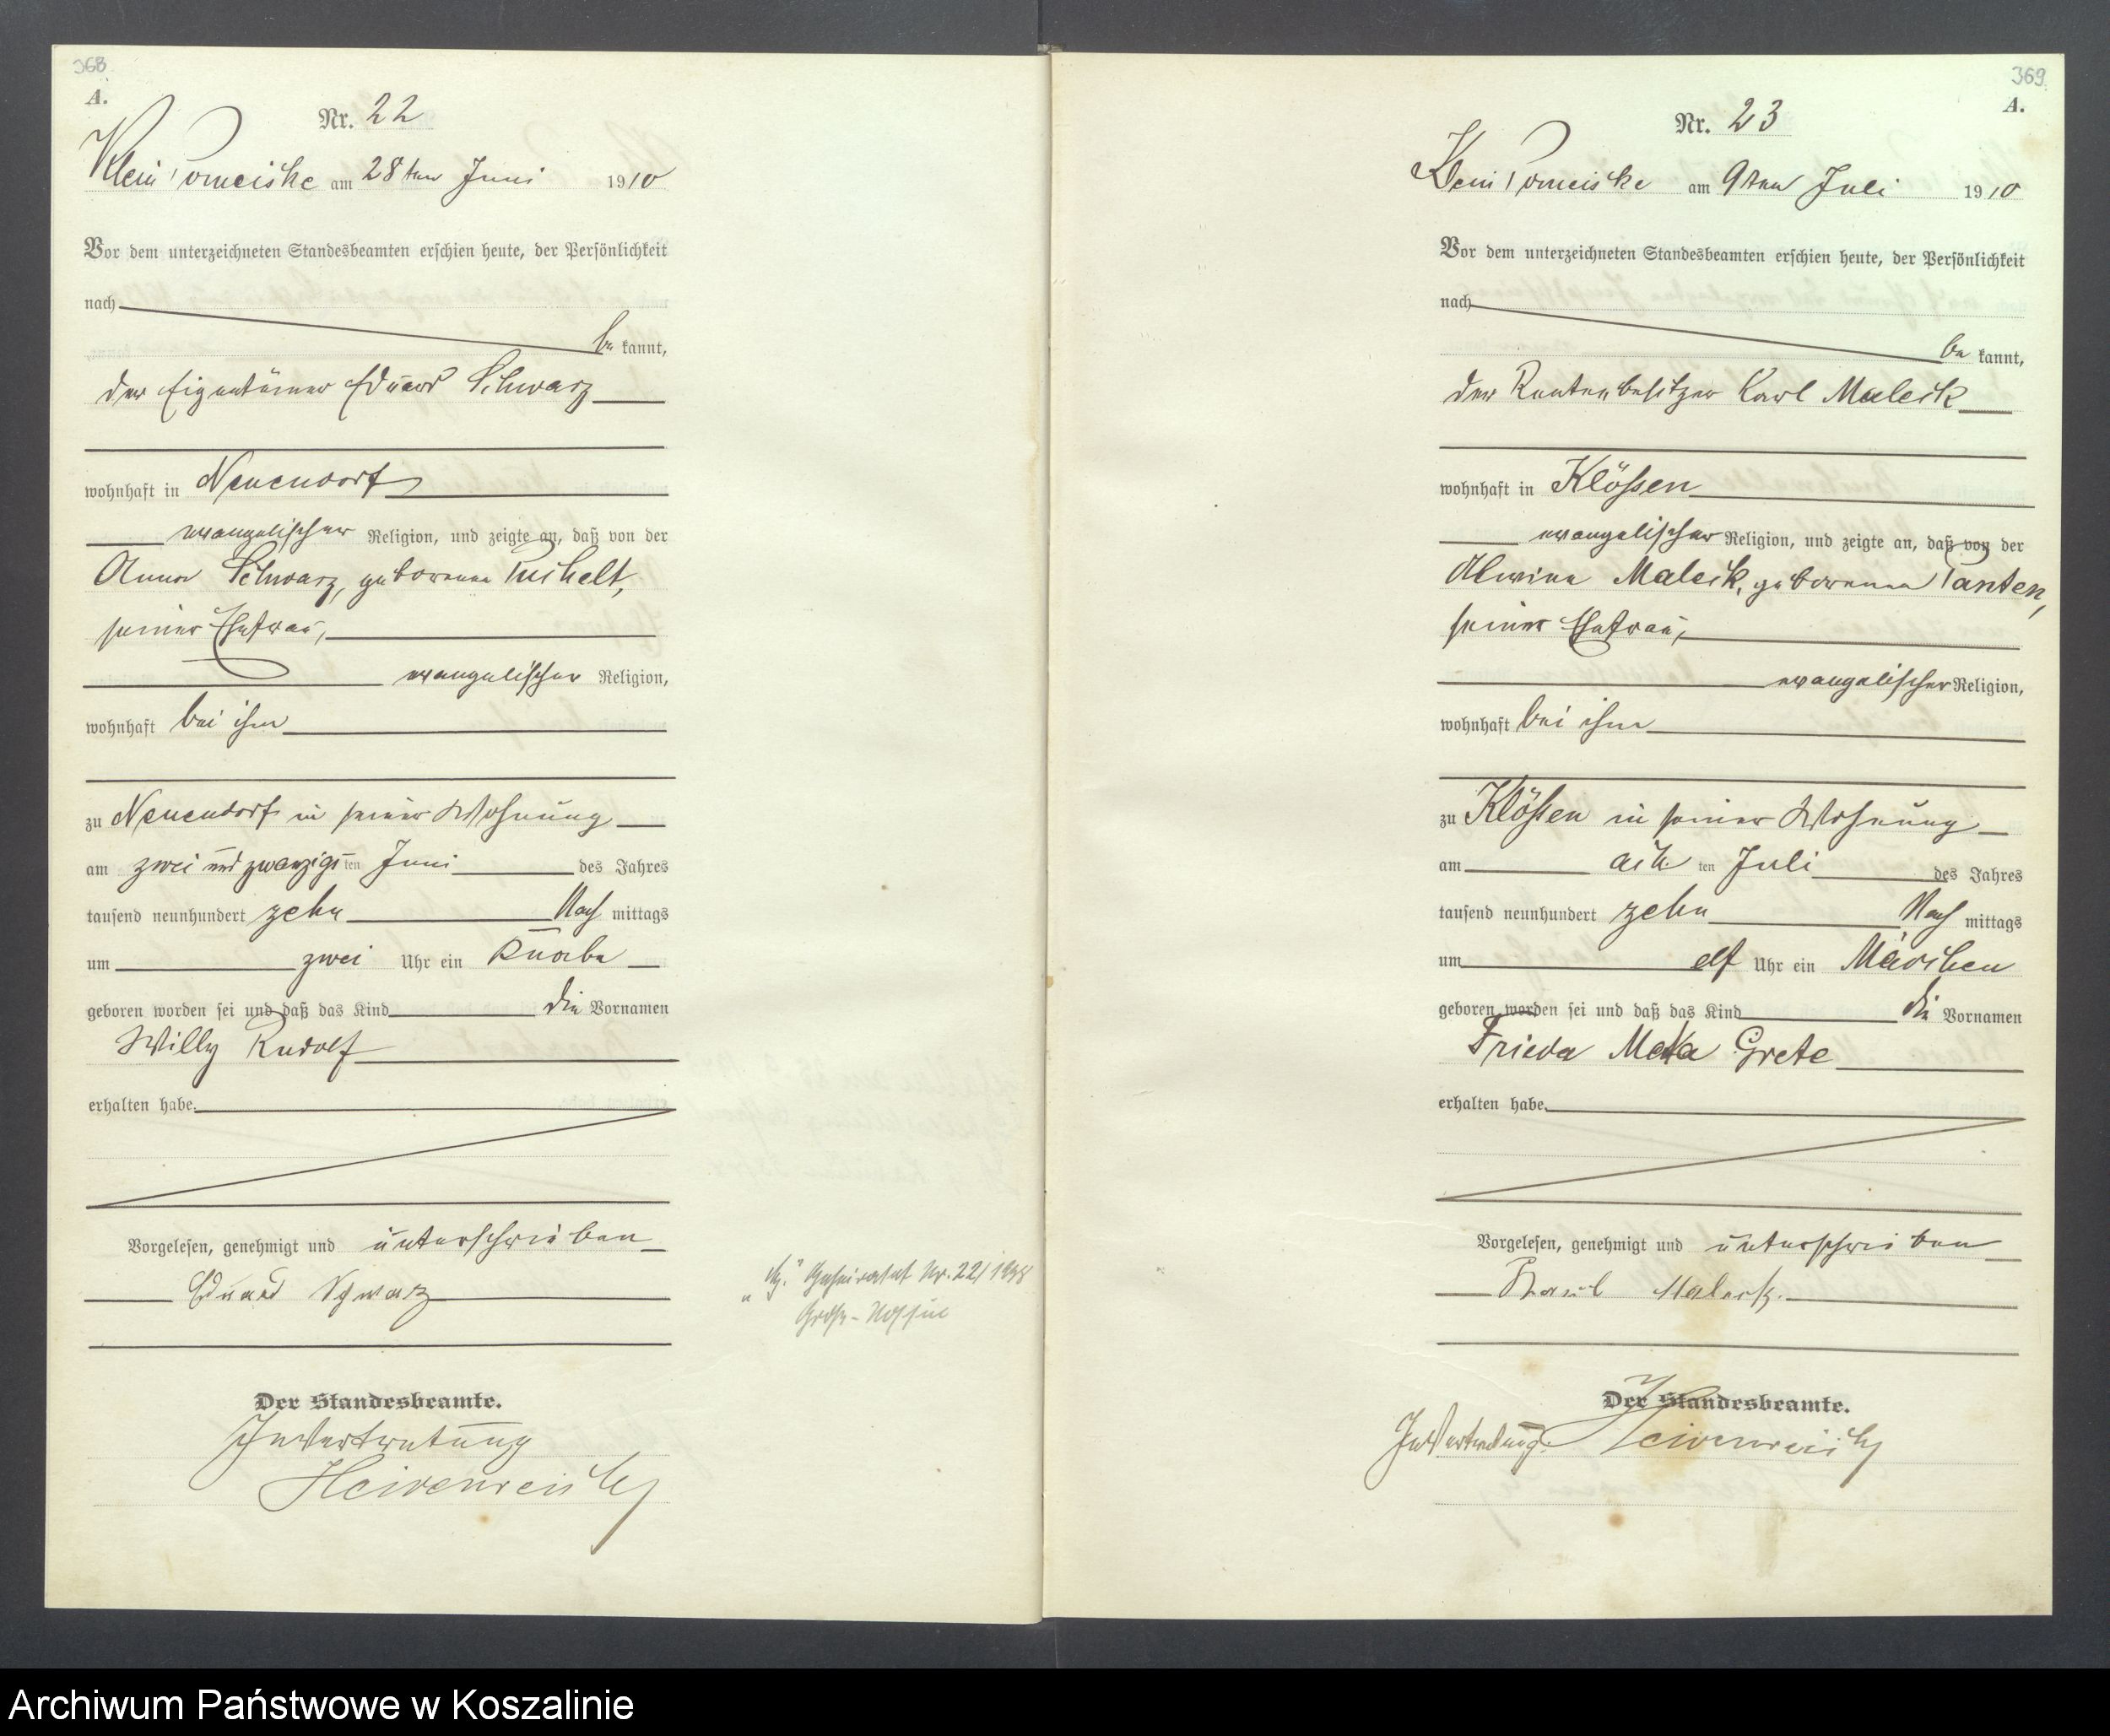 368
A.
Nr. 22
Klein Pomeiske am 28ten Juni 1910
Vor dem unterzeichneten Standesbeamten erschien heute, der Persönlichkeit
nach
be kannt,
der Eigentümer Eduard Schwarz
wohnhaft in Neuendorf
evangelischer Religion, und zeigte an, daß von der
Anna Schwarz, geborene Puchelt,
seiner Ehefrau,
evangelischer Religion,
wohnhaft bei ihm
zu Neuendorf in seiner Wohnung
am zwei und zwanzigsten Juni des Jahres
tausend neunhundert zehn Nach mittags
um zwei Uhr ein Knabe
geboren worden sei und daß das Kind die Vornamen
Willy Rudolf
erhalten habe.
Vorgelesen, genehmigt und unterschrieben
Eduard Schwarz
Geheiratet Nr. 22/1938
Groß-Nossin
Der Standesbeamte.
In Vertretung
Heidenreich
369
A.
Nr. 23
Klein Pomeiske am 9ten Juli 1910
Vor dem unterzeichneten Standesbeamten erschien heute, der Persönlichkeit
nach
be kannt,
der Rentenbesitzer Karl Maleck
wohnhaft in Klößen
evangelischer Religion, und zeigte an, daß von der
Alwine Maleck, geborenen Panten,
seiner Ehefrau,
evangelischer Religion,
wohnhaft bei ihm
zu Klößen in seiner Wohnung
am ach ten Juli des Jahres
tausend neunhundert zehn Nach mittags
um elf Uhr ein Mädchen
geboren worden sei und daß das Kind die Vornamen
Frieda Meta Grete
erhalten habe.
Vorgelesen, genehmigt und unterschrieben
Karl Maleck.
Der Standesbeamte.
In Vertretung. Heidenreich
Archiwum Państwowe w Koszalinie